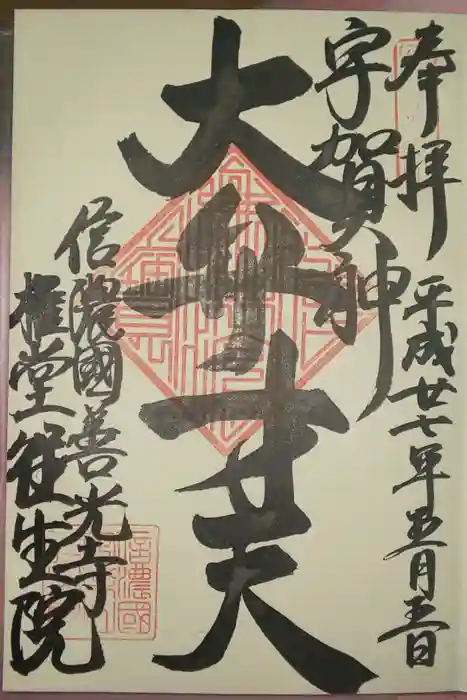 奉拝
平成廿七年五月五日
宇賀神
大弁才天
信濃國善光寺
権堂往生院
信濃國